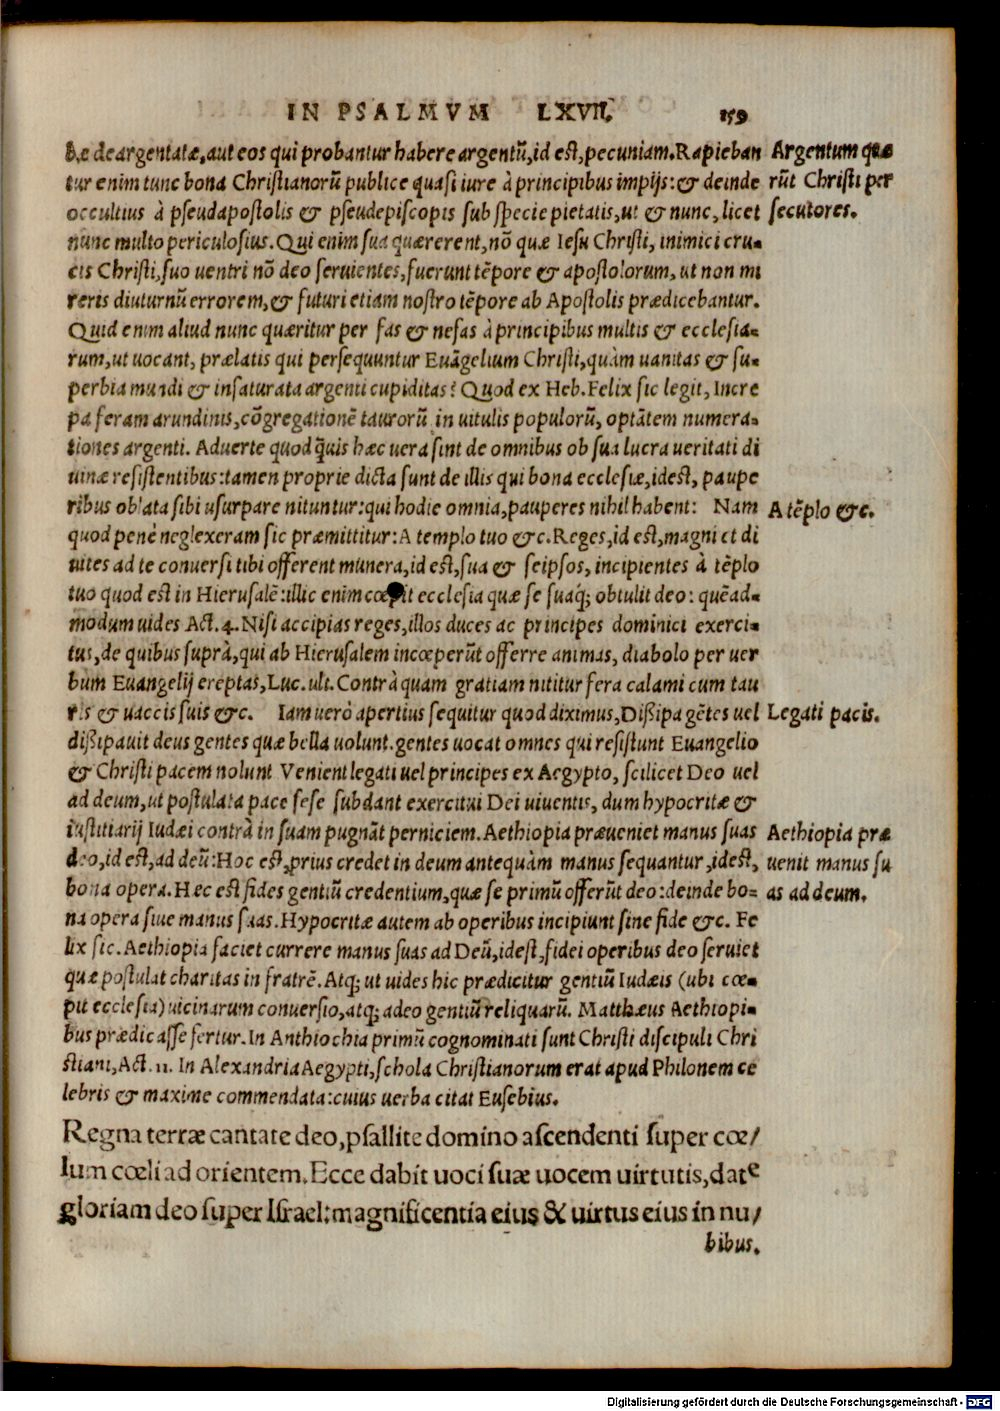 IN PSALMVM LXVII. 159
bæ deargentatæ, aut eos qui probantur habere argentũ, id est, pecuniam. Rapieban
tur enim tunc bona Christianorũ publice quasi iure à principibus impijs: & deinde
occultius à pseudapostolis & pseudepiscopis sub specie pietatis, ut & nunc, licet
nunc multo periculosius. Qui enim sua quærerent, nõ quæ Iesu Christi, inimici cru-
cis Christi, suo uentri nõ deo seruientes, fuerunt tẽpore & apostolorum, ut non mi
reris diuturnũ errorem, & futuri etiam nostro tẽpore ab Apostolis prædicebantur.
Quid enim aliud nunc quæritur per fas & nefas à principibus multis & ecclesia-
rum, ut uocant, prælatis qui persequuntur Euãgelium Christi, quàm uanitas & su-
perbia mundi & insaturata argenti cupiditas? Quod ex Heb. Felix sic legit, Incre
pa feram arundinis, cõgregationẽ taurorũ in uitulis populorũ, optãtem numera-
tiones argenti. Aduerte quod q̃uis hæc uera sint de omnibus ob sua lucra ueritati di
uinæ resistentibus: tamen proprie dicta sunt de illis qui bona ecclesiæ, idest, paupe
ribus oblata sibi usurpare nituntur: qui hodie omnia, pauperes nihil habent: Nam
quod penè neglexeram sic præmittitur: A templo tuo &c. Reges, id est, magni et di
uites ad te conuersi tibi offerent munera, id est, sua & seipsos, incipientes à tẽplo
tuo quod est in Hierusalẽ: illic enim cœpit ecclesia quæ se suaq; obtulit deo: quẽad-
modum uides Act. 4. Nisi accipias reges, illos duces ac principes dominici exerci-
tus, de quibus suprà, qui ab Hierusalem incœperũt offerre animas, diabolo per uer
bum Euangelij ereptas, Luc. ult. Contrà quam gratiam nititur fera calami cum tau
ris & uaccis suis &c. Iam uerò apertius sequitur quod diximus, Dißipa gẽtes uel
dißipauit deus gentes quæ bella uolunt. gentes uocat omnes qui resistunt Euangelio
& Christi pacem nolunt Venient legati uel principes ex Aegypto, scilicet Deo uel
ad deum, ut postulata pace sese subdant exercitui Dei uiuentis, dum hypocritæ &
iustitiarij Iudæi contrà in suam pugnãt perniciem. Aethiopia præueniet manus suas
deo, id est, ad deũ: Hoc est, prius credet in deum antequàm manus sequantur, idest,
bona opera. Hæc est fides gentiũ credentium, quæ se primũ offerũt deo: deinde bo-
na opera siue manus suas. Hypocritæ autem ab operibus incipiunt sine fide &c. Fe
lix sic. Aethiopia faciet currere manus suas ad Deũ, idest, fidei operibus deo seruiet
quæ postulat charitas in fratrẽ. Atq; ut uides hic prædicitur gentiũ Iudæis (ubi cœ-
pit ecclesia) uicinarum conuersio, atq; adeo gentiũ reliquarũ. Matthæus Aethiopi-
bus prædicasse fertur. In Anthiochia primũ cognominati sunt Christi discipuli Chri
stiani, Act. 11. In Alexandria Aegypti, schola Christianorum erat apud Philonem ce
lebris & maxime commendata: cuius uerba citat Eusebius.
Regna terræ cantate deo, psallite domino ascendenti super cœ/
lum cœli ad orientem. Ecce dabit uoci suæ uocem uirtutis, date
gloriam deo super Israel: magnificentia eius & uirtus eius in nu/
bibus.
Argentum quæ
rũt Christi per
secutores.
A tẽplo &c.
Legati pacis.
Aethiopia præ
uenit manus su
as ad deum.
Digitalisierung gefördert durch die Deutsche Forschungsgemeinschaft - DFG